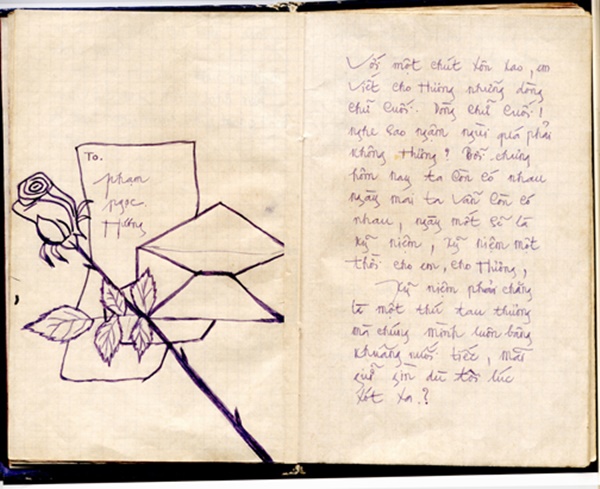 To.
phạm
ngọc
Hương
Với một chút xôn xao, em
viết cho Hương những dòng
chữ cuối. Dòng chữ cuối!
nghe sao ngậm ngùi quá phải
không Hương? Bởi chúng
hôm nay ta còn có nhau
ngày mai ta vẫn còn có
nhau, ngày mốt sẽ là
kỹ niệm, kỹ niệm một
thời cho em, cho Hương,
Kỹ niệm phải chăng
là một thứ tau thương
mà chúng mình luôn bâng
khuâng nuối tiếc, mãi
giữ gìn dù lúc
xót xa?